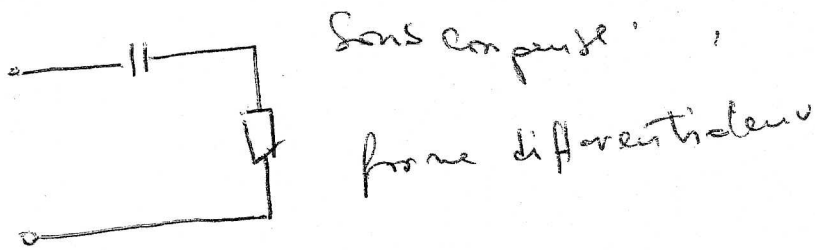 Sous compensé
forme différentiateur